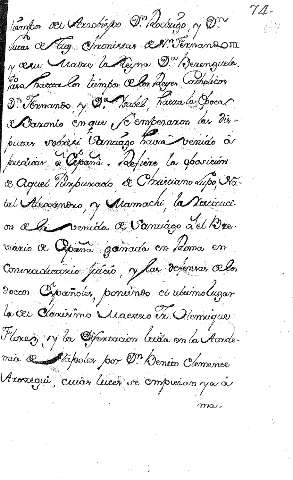 74
tiempo del Arzobispo Dn. Rodrigo, y Dn.
Lucas de Tuy, Chronistas de Sn. Fernando III
y de su Madre la Reyna Dª Berenguela.
hasta los tiempos de los Reyes Catholicos
Dn. Fernando y Dª Isabel, hasta la Epoca
de Baronio en que se empezaron las dis-
putas sobre si Santiago havia venido á
predicar á España. Refiere la oposicion
de aquel Purpurado de Christiano Lupo, Na-
tal Alexandro y Mamachi, la
on de la venida de Santiago del Bre-
viario de España ganada en Roma en
contradictorio juicio, y las defensas de los
doctos Españoles, poniendo el ultimo lugar
la de Clarisimo Maestro Fr. Henrique
Florez, y la disertacion leida en la Acade-
mia de Napoles por Dn. Benito Clemente
Arostegui, cuias luces se empeñan ya á
ma